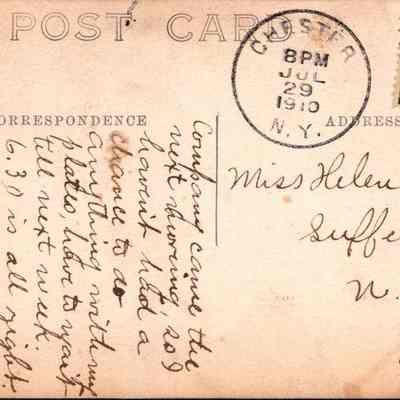 POST CARD
CHESTER
8PM
JUL
29
1910
N.Y.
ORRESPONDENCE
ADDRESS
Company came the
next morning, so I
havent had a
chance to do
anything with my
plates, have to wait
till next week.
6.30 is all right.
Miss Helen
Suffe
N.